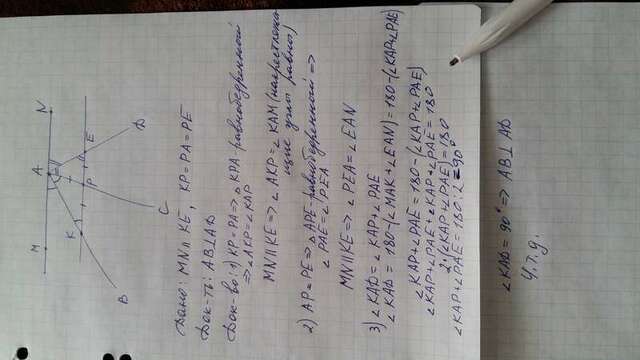 M A N
K P E
B
D
C
Дано: MN ∥ KE, KP = PA = PE
Док-ть: AB⊥AD
Док-во: 1) KP = PA ⇒ △KPA - равнобедренный
⇒ ∠AKP = ∠KAP
MN ∥ KE ⇒ ∠AKP = ∠KAM (накрестлежа-
щие углы равны)
2) AP = PE ⇒ △APE - равнобедренный ⇒
∠PAE = ∠PEA
MN ∥ KE ⇒ ∠PEA = ∠EAN
3) ∠KAD = ∠KAP + ∠PAE
∠KAD = 180 - (∠MAK + ∠EAN) = 180 - (∠KAP + ∠PAE)
∠KAP + ∠PAE = 180 - (∠KAP + ∠PAE)
∠KAP + ∠PAE + ∠KAP + ∠PAE = 180
2·(∠KAP + ∠PAE) = 180
∠KAP + ∠PAE = 180 : 2 = 90°
∠KAD = 90° ⇒ AB⊥AD
Ч.т.д.